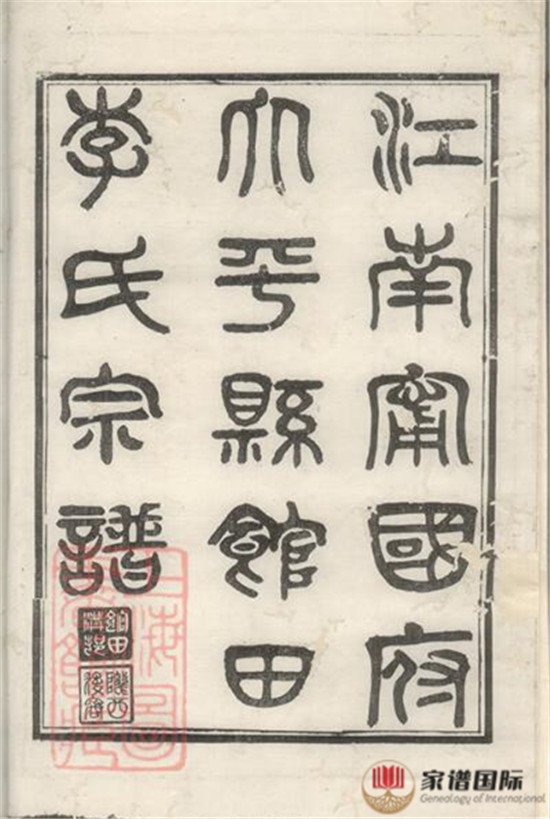 江南甯國府
大平縣館田
李氏宗譜
館田
隴西
上海圖
書館藏
家谱国际
Genealogy of International